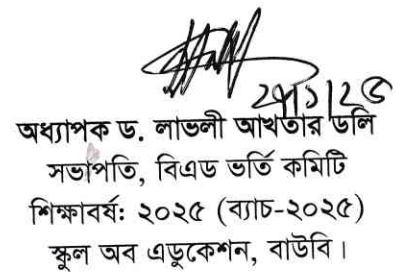 অধ্যাপক ড. লাভলী আখতার ডলি
সভাপতি, বিএড ভর্তি কমিটি
শিক্ষাবর্ষ: ২০২৫ (ব্যাচ-২০২৫)
স্কুল অব এডুকেশন, বাউবি।